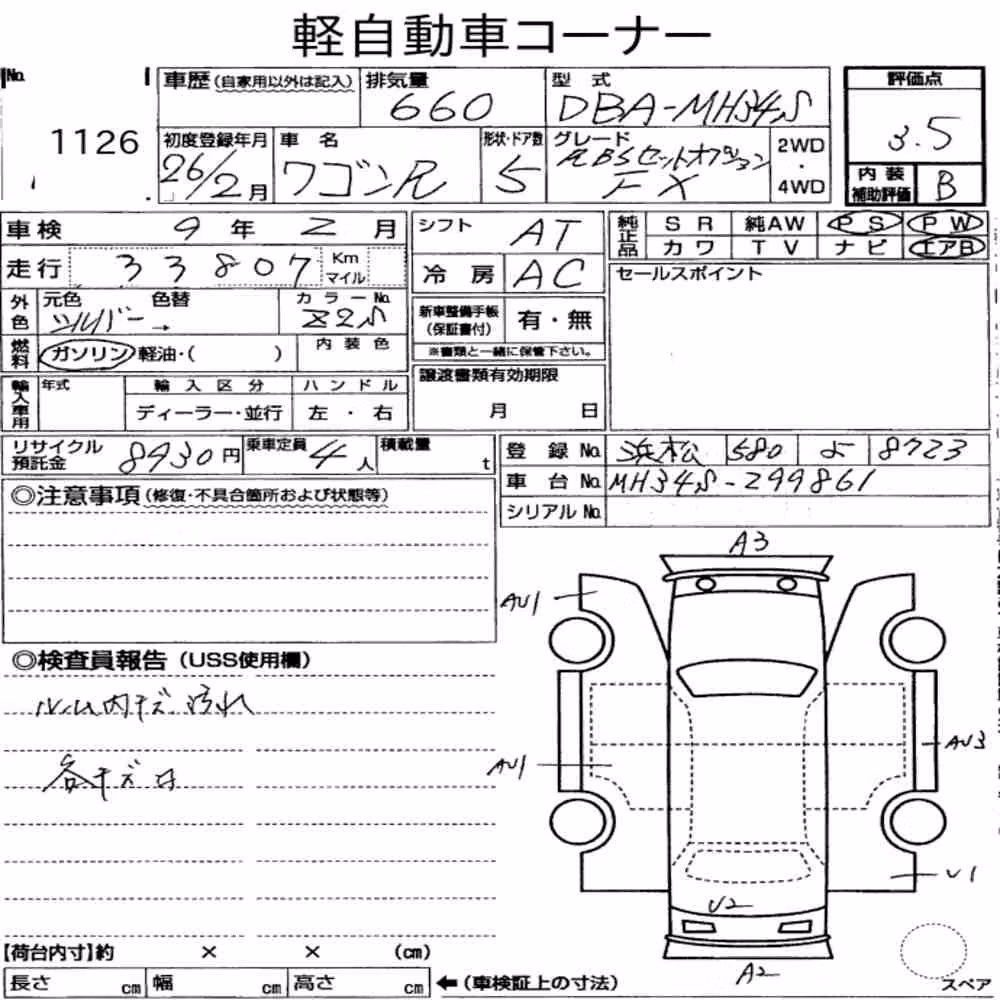 軽自動車コーナー
No. 1126
車歴(自家用以外は記入) 排気量 660 型式 DBA-MH34S
初度登録年月 26/2月 車名 ワゴンR 形状・ドア数 5 グレード RBSセットオプション FX 2WD・4WD
評価点 3.5
内装補助評価 B
車検 9年2月
走行 33807 Km マイル
外色 元色 シルバー→ 色替 カラーNo. Z2S
燃料 ガソリン・軽油・( ) 内装色
輸入車用 年式 輸入区分 ディーラー・並行 ハンドル 左・右
シフト AT
冷房 AC
新車整備手帳(保証書付) 有・無
※書類と一緒に保管下さい。
譲渡書類有効期限 月 日
純正品 SR 純AW PS PW
カワ TV ナビ エアB
セールスポイント
リサイクル預託金 8930円 乗車定員 4人 積載量 t
登録No. 浜松 580 よ 8723
車台No. MH34S-299861
シリアルNo.
◎注意事項(修復・不具合箇所および状態等)
◎検査員報告(USS使用欄)
ルーム内キズ汚れ
各キズ凹
A3
AU1
AU1
AU3
U1
U2
A2
スペア
【荷台内寸】約 × × (cm)
長さ cm 幅 cm 高さ cm ←(車検証上の寸法)